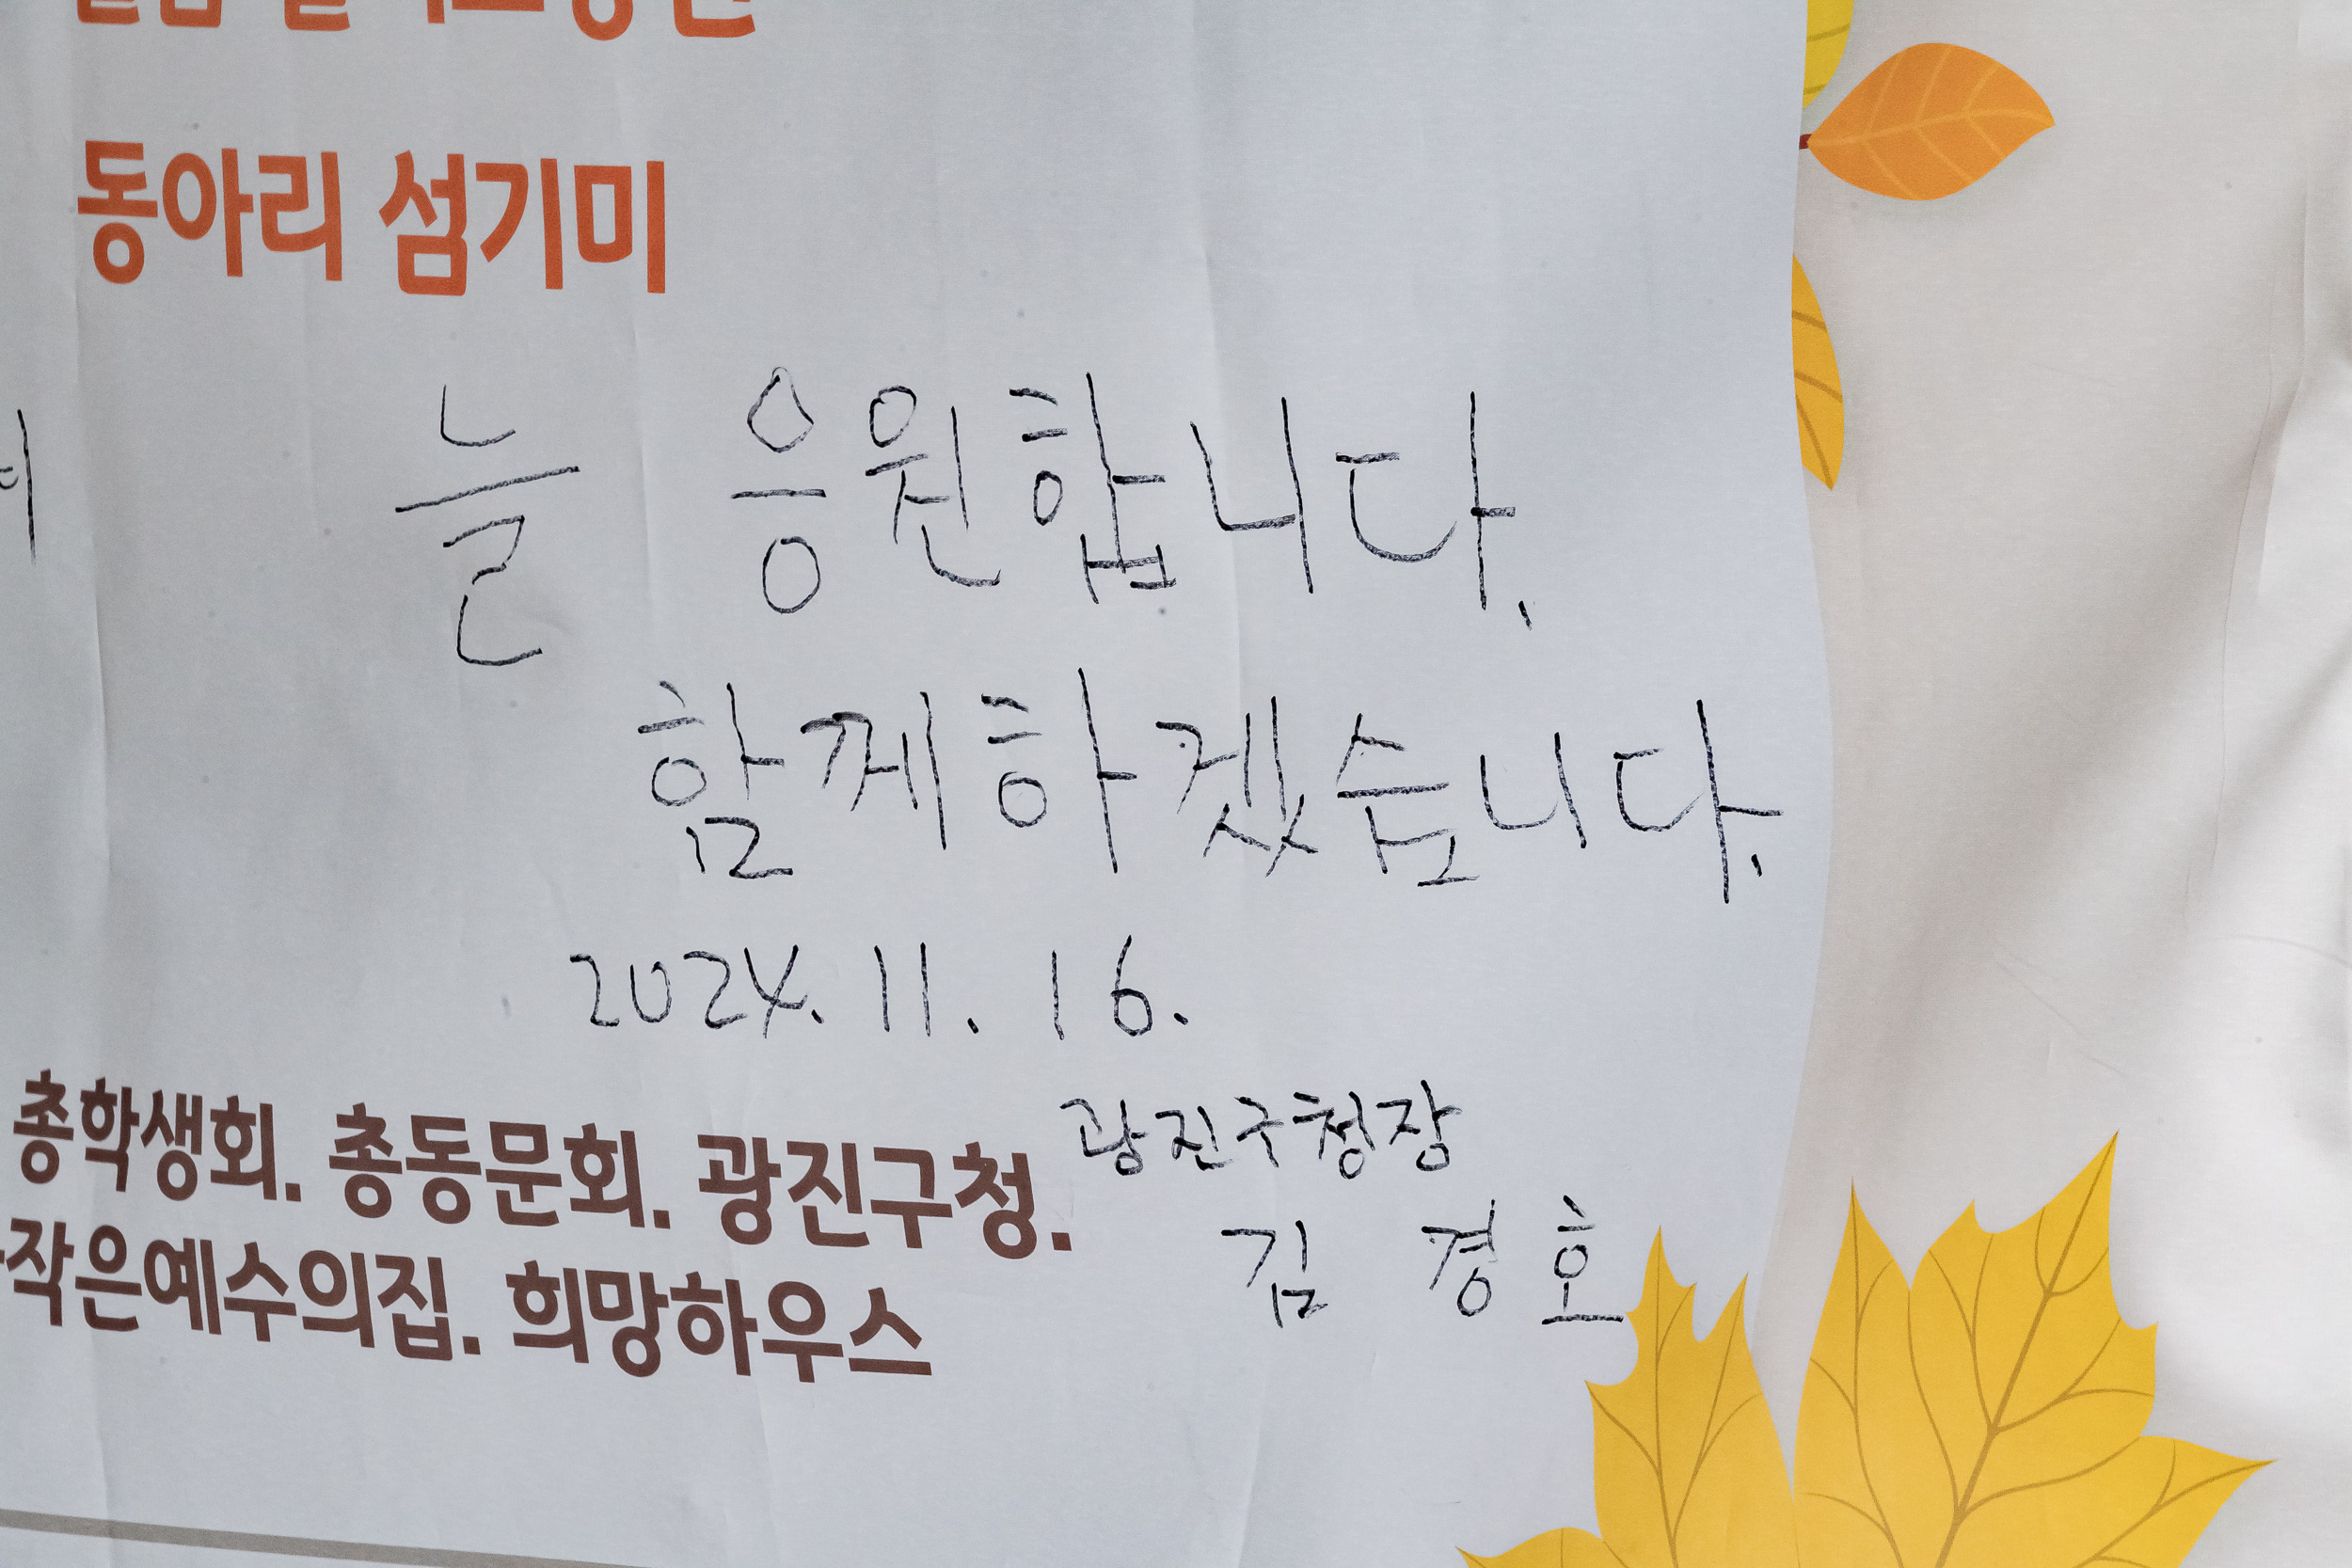 동아리 섬기미
늘 응원합니다.
함께하겠습니다.
2024. 11. 16.
총학생회. 총동문회. 광진구청.
광진구청장
작은예수의집. 희망하우스
김 경 호